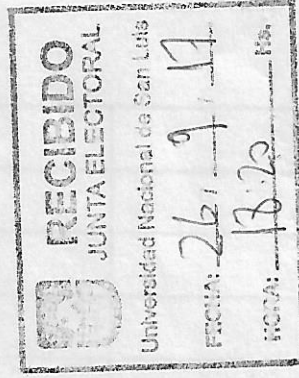 RECIBIDO
JUNTA ELECTORAL
Universidad Nacional de San Luis
FECHA: 26 / 9 / 17
HORA: 18:20 Hs.